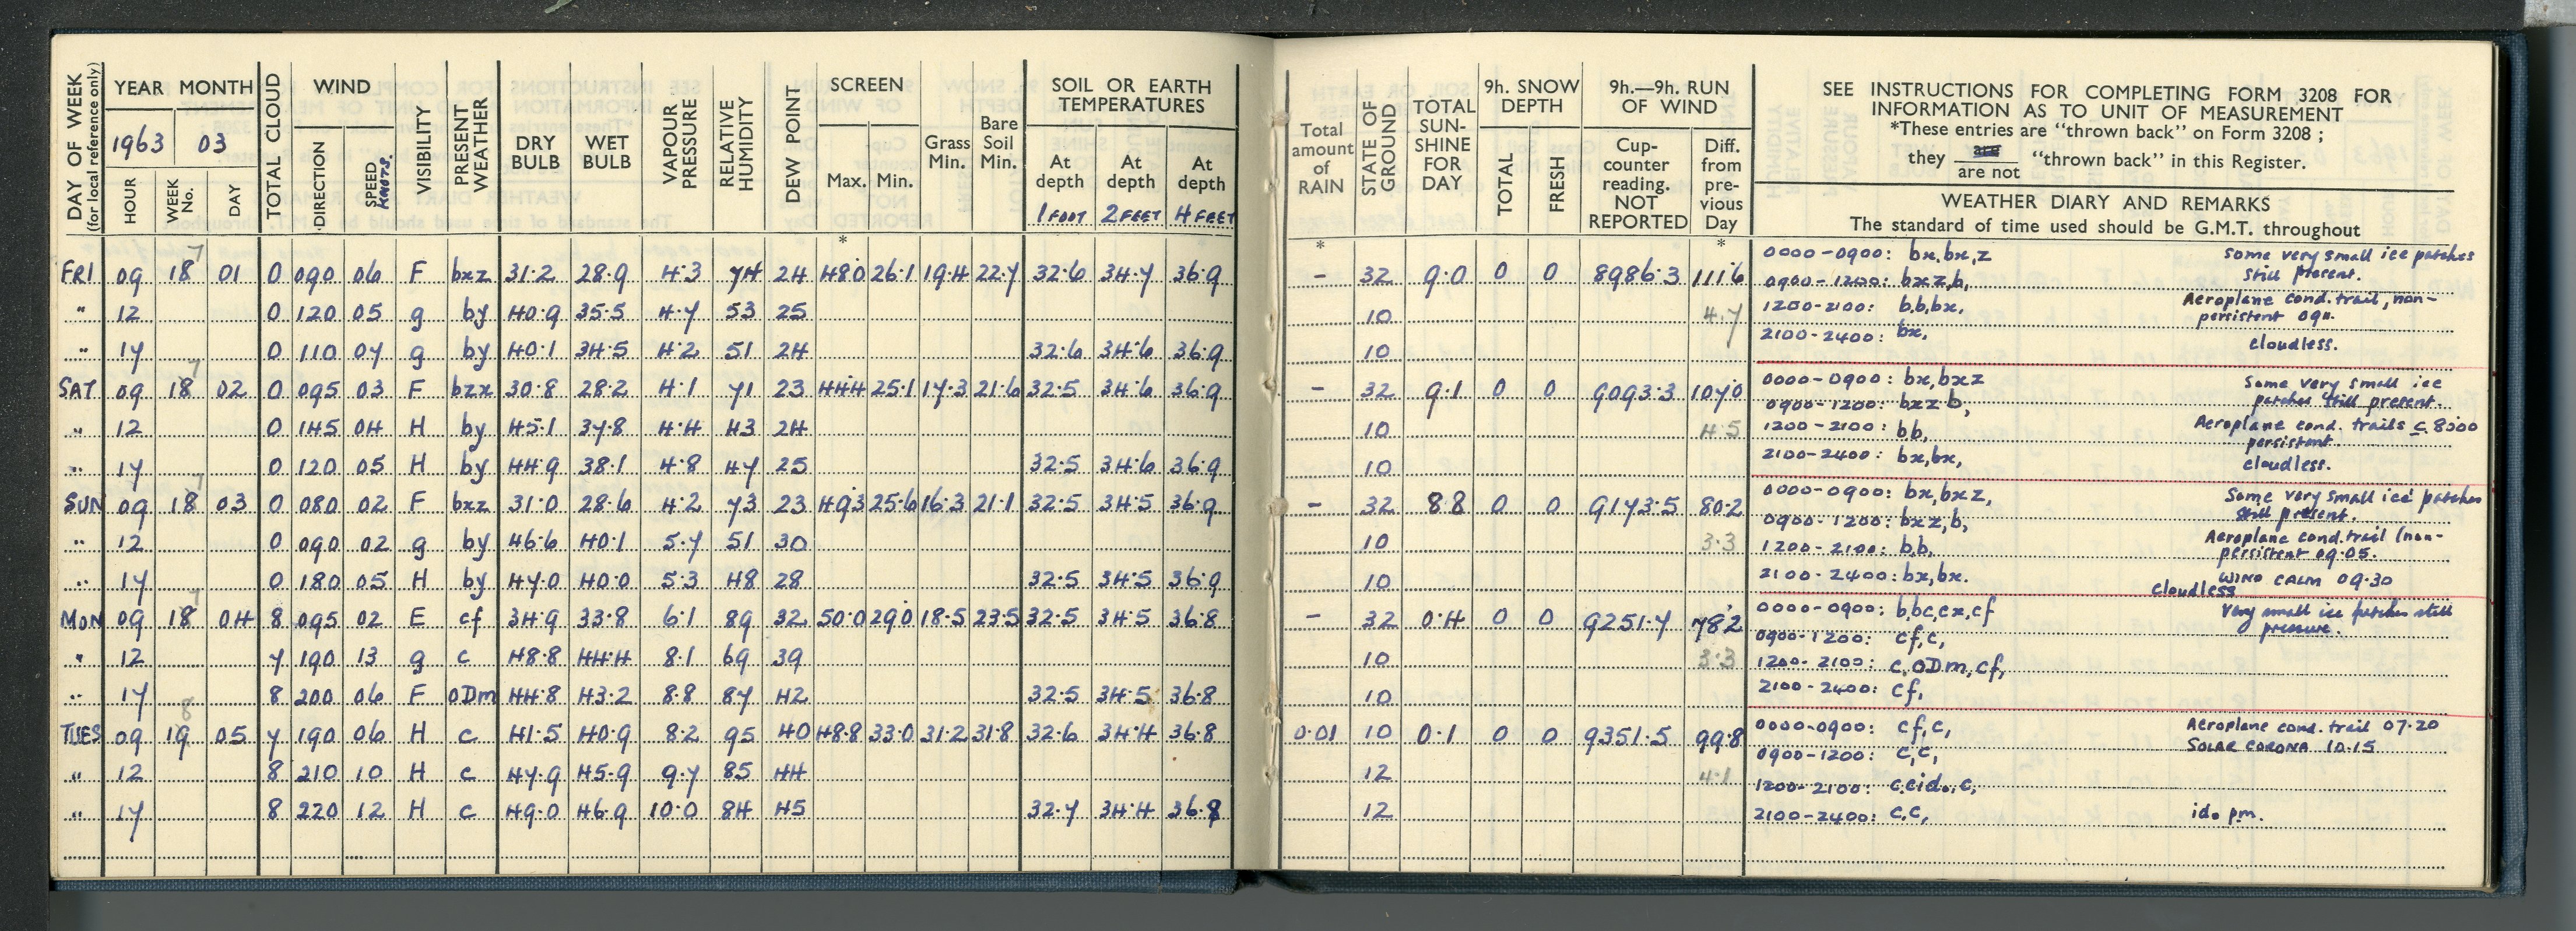 DAY OF WEEK (for local reference only) YEAR MONTH TOTAL CLOUD WIND VISIBILITY PRESENT WEATHER DRY BULB WET BULB VAPOUR PRESSURE RELATIVE HUMIDITY DEW POINT SCREEN Grass Min. Bare Soil Min. SOIL OR EARTH TEMPERATURES
1963 03
HOUR WEEK No. DAY DIRECTION SPEED KNOTS. Max. Min. At depth At depth At depth
1 FOOT 2 FEET 4 FEET
*
7
FRI 09 18 01 0 090 06 F bxz 31.2 28.9 4.3 74 24 48.0 26.1 19.4 22.7 32.6 34.7 36.9
" 12 0 120 05 g by 40.9 35.5 4.7 53 25
" 17 0 110 07 g by 40.1 34.5 4.2 51 24 32.6 34.6 36.9
7
SAT 09 18 02 0 095 03 F bzx 30.8 28.2 4.1 71 23 44.4 25.1 17.3 21.6 32.5 34.6 36.9
" 12 0 145 04 H by 45.1 37.8 4.4 43 24
" 17 0 120 05 H by 44.9 38.1 4.8 47 25 32.5 34.6 36.9
7
SUN 09 18 03 0 080 02 F bxz 31.0 28.6 4.2 73 23 49.3 25.6 16.3 21.1 32.5 34.5 36.9
" 12 0 090 02 g by 46.6 40.1 5.7 51 30
" 17 0 180 05 H by 47.0 40.0 5.3 48 28 32.5 34.5 36.9
7
MON 09 18 04 8 095 02 E cf 34.9 33.8 6.1 89 32 50.0 29.0 18.5 23.5 32.5 34.5 36.8
" 12 7 190 13 g c 48.8 44.4 8.1 69 39
" 17 8 200 06 F ODm 44.8 43.2 8.8 87 42 32.5 34.5 36.8
8
TUES 09 19 05 7 190 06 H c 41.5 40.9 8.2 95 40 48.8 33.0 31.2 31.8 32.6 34.4 36.8
" 12 8 210 10 H c 47.9 45.9 9.7 85 44
" 17 8 220 12 H c 49.0 46.9 10.0 84 45 32.7 34.4 36.8
Total amount of RAIN STATE OF GROUND TOTAL SUN-SHINE FOR DAY 9h. SNOW DEPTH 9h.—9h. RUN OF WIND
TOTAL FRESH Cup-counter reading. NOT REPORTED Diff. from pre-vious Day
* *
SEE INSTRUCTIONS FOR COMPLETING FORM 3208 FOR
INFORMATION AS TO UNIT OF MEASUREMENT
*These entries are "thrown back" on Form 3208 ;
they are / are not "thrown back" in this Register.
WEATHER DIARY AND REMARKS
The standard of time used should be G.M.T. throughout
- 32 9.0 0 0 8986.3 111.6
10 4.7
10
- 32 9.1 0 0 9093.3 107.0
10 4.5
10
- 32 8.8 0 0 9173.5 80.2
10 3.3
10
- 32 0.4 0 0 9251.7 78.2
10 3.3
10
0.01 10 0.1 0 0 9351.5 99.8
12 4.1
12
0000-0900: bx,bx,z Some very small ice patches
still present.
0900-1200: bxz,b,
1200-2100: b,b,bx, Aeroplane cond. trail, non-
persistent 0911.
2100-2400: bx, cloudless.
0000-0900: bx,bxz Some very small ice
patches still present.
0900-1200: bxz b,
1200-2100: bb, Aeroplane cond. trails c. 8000
persistent.
2100-2400: bx,bx, cloudless.
0000-0900: bx,bxz, Some very small ice patches
still present.
0900-1200: bxz,b,
1200-2100: b,b, Aeroplane cond. trail (non-
persistent 09.05.
2100-2400: bx,bx. WIND CALM 09.30
cloudless
0000-0900: b,bc,cx,cf Very small ice patches still
0900-1200: cf,c,
1200-2100: c,ODm,cf,
2100-2400: cf,
0000-0900: cf,c, Aeroplane cond. trail 07.20
0900-1200: c,c, SOLAR CORONA 10.15
1200-2100: c,cido,c,
2100-2400: c,c, ido pm.